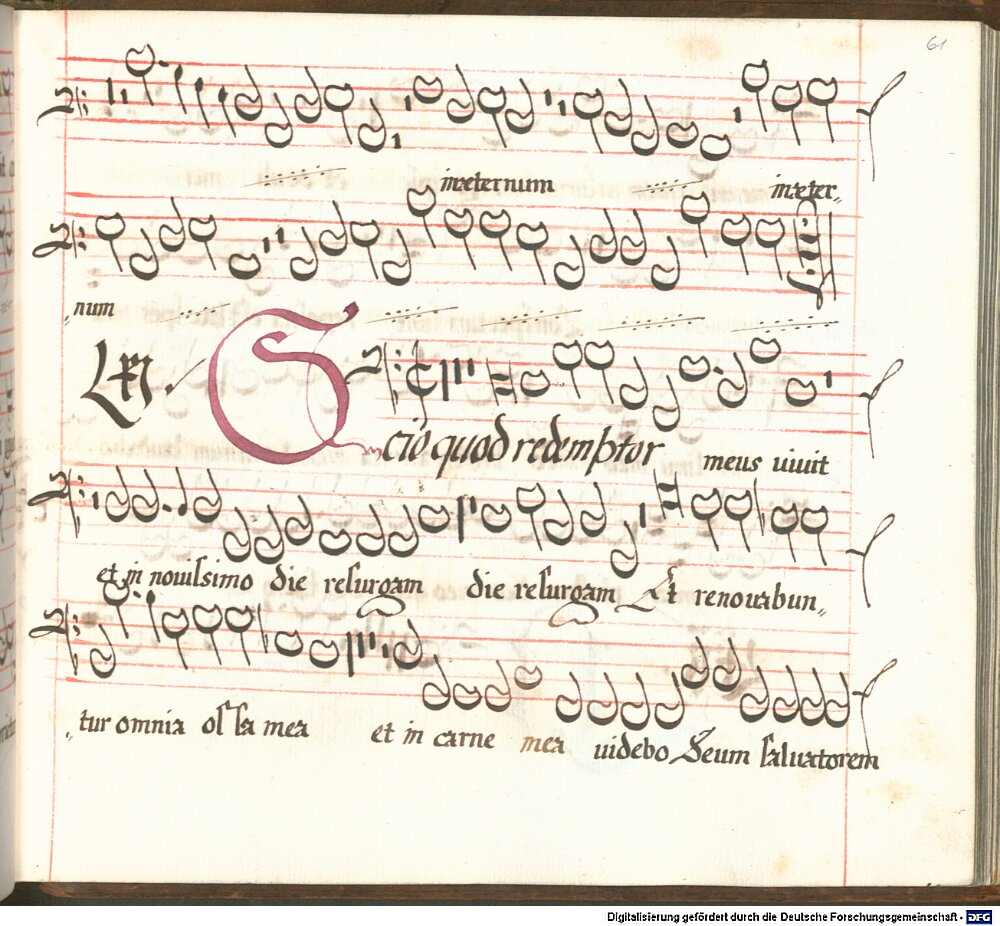 61
inæternum inæter„
„num
Scio quod redemptor meus uiuit
et in nouissimo die resurgam die resurgam Et renouabun„
„tur omnia ossa mea et in carne mea uidebo Deum saluatorem
Digitalisierung gefördert durch die Deutsche Forschungsgemeinschaft - DFG